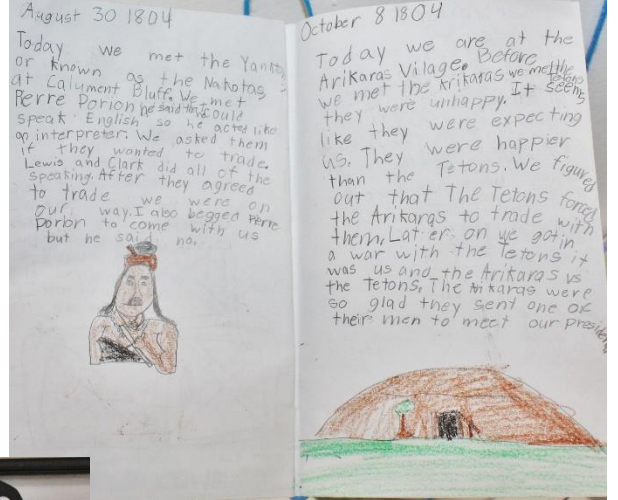 August 30 1804
Today we met the Yankton
or known as the Nakotas,
at Calument Bluff. We met
Perre Porion he said he could
speak English so he acted like
an interpreter. We asked them
if they wanted to trade.
Lewis and Clart did all of the
speaking. After they agreed
to trade we were on
our way. I also begged Perre
Porion to come with us
but he said no.
October 8 1804
Today we are at the
Arikaras Vilage. Before
we met the Arikaras we met the Tetons
they were unhappy. It seems
like they were expecting
us. They were happier
than the Tetons. We figured
out that The Tetons forced
the Arikaras to trade with
them. Lat-er on we got in
a war with the Tetons it
was us and the Arikaras vs
the Tetons. The Arikaras were
so glad they sent one of
their men to meet our President